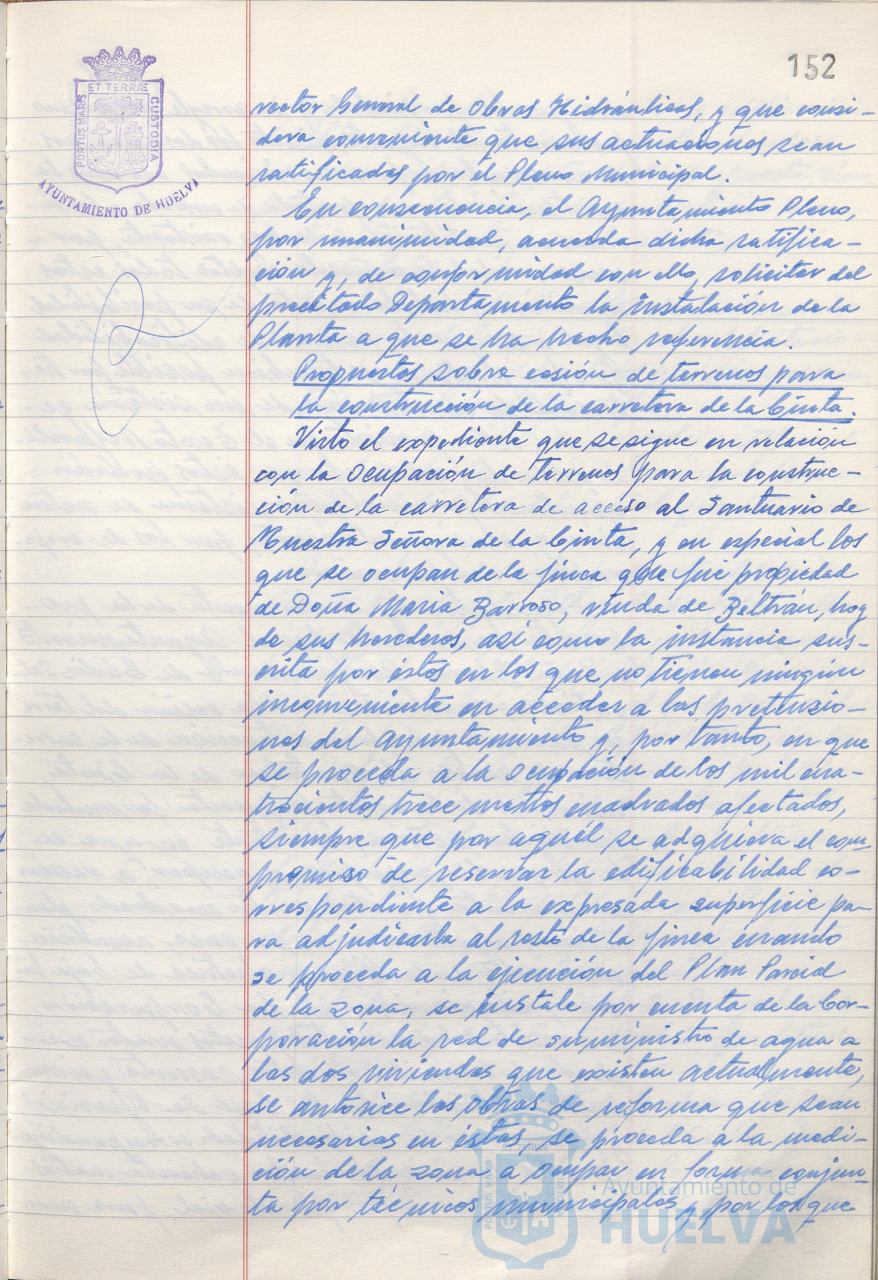 152
PORTUS MARIS
ET TERRÆ
CUSTODIA
AYUNTAMIENTO DE HUELVA
rector General de Obras Hidráulicas, y que consi-
dera conveniente que sus actuaciones sean
ratificadas por el Pleno Municipal.
En consecuencia, el Ayuntamiento Pleno,
por unanimidad, acuerda dicha ratifica-
ción y, de conformidad con ello, solicitar del
precitado Departamento la instalación de la
Planta a que se ha hecho referencia.
Propuestas sobre cesión de terrenos para
la construcción de la carretera de la Cinta.
Visto el expediente que se sigue en relación
con la ocupación de terrenos para la construc-
ción de la carretera de acceso al Santuario de
Nuestra Señora de la Cinta, y en especial los
que se ocupan de la finca que fué propiedad
de Doña María Barroso, viuda de Beltrán, hoy
de sus herederos, así como la instancia sus-
crita por éstos en los que no tienen ningún
inconveniente en acceder a las pretensio-
nes del Ayuntamiento y, por tanto, en que
se proceda a la ocupación de los mil cua-
trocientos trece metros cuadrados afectados,
siempre que por aquél se adquiera el com
promiso de reservar la edificabilidad co-
rrespondiente a la expresada superficie pa-
ra adjudicarla al resto de la finca cuando
se proceda a la ejecución del Plan Parcial
de la zona, se instale por cuenta de la Cor-
poración la red de suministro de agua a
las dos viviendas que existen actualmente,
se autorice las obras de reforma que sean
necesarias en éstas, se proceda a la medi-
ción de la zona a ocupar en forma conjun-
ta por técnicos municipales y por los que
PORTUS MARIS
CUSTODIA
Ayuntamiento de
HUELVA